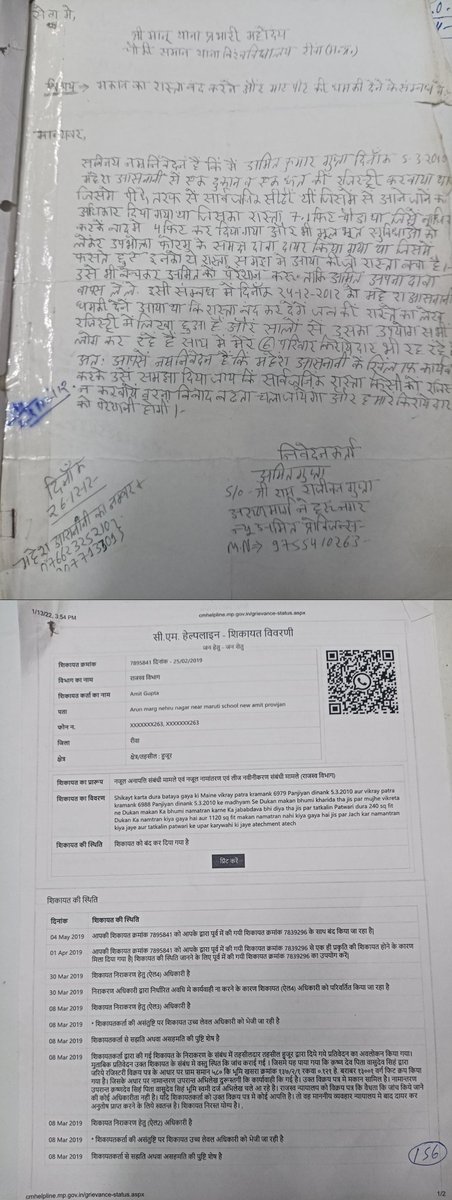 सेवा में,
श्री मान् थाना प्रभारी महोदय
चौकी समान थाना विश्वविद्यालय रीवा (म.प्र.)
विषय → मकान का रास्ता बंद करने और मार पीट की धमकी देने के सम्बन्ध में:-
मान्यवर,
सविनय नम्र निवेदन है कि मैं अमित कुमार गुप्ता दिनाँक 5.3.2010
महेश आसवानी से एक दुकान व एक छत की रजिस्ट्री करवाया था
जिसमे पीछे तरफ से सार्वजनिक सीढ़ी थी जिसमे से आने जाने का
अधिकार दिया गया था जिसका रास्ता 7.1 फिट चौड़ा था
करके बाद मे 4 फिट कर दिया गया और भी मूल भूत सुविधाओं को
लेकर उपभोक्ता फोरम के समक्ष दावा दायर किया गया था जिसमे
उसे भी बेचकर अमित को परेशान करू ताकि अमित अपना दावा
वापस ले ले. इसी संबन्ध मे दिनाँक 24-12-2012 को महेश आसवानी
धमकी देने आया था कि रास्ता बंद कर देंगे
रजिस्ट्री में लिखा हुआ है और सालो से उसका उपयोग सभी
लोग कर रहे है साथ मे मेरे परिवार किरायेदार भी रह रहे है
अतः आपसे नम्र निवेदन है कि महेश आसवानी के खिलाफ कार्यवाही
करके उसे समझा दिया जाय कि सार्वजनिक रास्ता किसी को रजिस्ट्री
न करवाये वरना विवाद बढता चला जायेगा और हमारे किरायेदार
को परेशानी होगी।-
निवेदनकर्ता
अमित गुप्ता
S/o - श्री राम गुप्ता
अरुण मार्ग नेहरू नगर
न्यू अमित प्रोविजन्स-
M.N→ 9755410263-
दिनाँक
26-12-12
महेश आसवानी का नम्बर
1/12/22, 3:54 PM
cmhelpline.mp.gov.in/grievance-status.aspx
सी.एम. हेल्पलाइन - शिकायत विवरणी
जन हेतु - जन सेतु
शिकायत क्रमांक 7895841 दिनांक - 25/02/2019
विभाग का नाम राजस्व विभाग
शिकायत कर्ता का नाम Amit Gupta
पता Arun marg nehru nagar near maruti school new amit provijan
फोन न. XXXXXXX263, XXXXXXX263
जिला रीवा
क्षेत्र क्षेत्र/तहसील : हुजूर
शिकायत का प्रारूप नजूल अनापत्ति संबंधी मामले एवं नजूल नामांतरण एवं लीज नवीनीकरण संबंधी मामले (राजस्व विभाग)
शिकायत का विवरण Shikayt karta dura bataya gaya ki Maine vikray patra kramank 6979 Panjiyan dinank 5.3.2010 aur vikray patra
kramank 6988 Panjiyan dinank 5.3.2010 ke madhyam Se Dukan makan bhumi kharida tha jis par mujhe vikreta
ne Dukan makan Ka bhumi namatran karne Ka jababdava bhi diya tha jis par tatkalin Patwari dura 240 sq fit
Dukan Ka namtran kiya gaya hai aur 1120 sq fit makan namatran nahi kiya gaya hai jis par Jach kar namantran
kiya jaye aur tatkalin patwari ke upar karywahi ki jaye atechment atech
शिकायत की स्थिति शिकायत को बंद कर दिया गया है
प्रिंट करें
शिकायत की स्थिति
दिनांक शिकायत की स्थिति
04 May 2019 आपकी शिकायत क्रमांक 7895841 को आपके द्वारा पूर्व में की गयी शिकायत क्रमांक 7839296 के साथ बंद किया जा रहा है|
01 Apr 2019 आपकी शिकायत क्रमांक 7895841 को आपके द्वारा पूर्व में की गयी शिकायत क्रमांक 7839296 से एक ही प्रकृति की शिकायत होने के कारण
मिला दिया गया है| शिकायत की स्थिति जानने के लिए पूर्व में की गयी शिकायत क्रमांक 7839296 का उपयोग करें|
30 Mar 2019 शिकायत निराकरण हेतु (ऐल4) अधिकारी है
30 Mar 2019 निराकरण अधिकारी द्वारा निर्धारित अवधि में कार्यवाही ना करने के कारण शिकायत (ऐल4) अधिकारी को परिवर्तित किया जा रहा है
08 Mar 2019 शिकायत निराकरण हेतु (ऐल3) अधिकारी है
08 Mar 2019 * शिकायतकर्ता की असंतुष्टि पर शिकायत उच्च लेवल अधिकारी को भेजी जा रही है
08 Mar 2019 शिकायतकर्ता से सहमति अथवा असहमति की पुष्टि शेष है
08 Mar 2019 शिकायतकर्ता द्वारा की गई शिकायत के निराकरण के संबंध में तहसीलदार तहसील हुजूर द्वारा दिये गये प्रतिवेदन का अवलोकन किया गया।
मुताबिक प्रतिवेदन उक्त शिकायत के संबंध में वस्तु स्थिति की जांच कराई गई । जिसमें यह पाया गया कि कृष्ण देव पिता वासुदेव सिंह द्वारा
जरिये रजिस्टरी विक्रय पत्र के आधार पर ग्राम समान ५८० कि भूमि खसरा क्रमांक १३७/५/९ रकवा ०.१२१ हे. बराबर ११००१ वर्ग फिट क्रय किया
गया है। जिसके आधार पर नामान्तरण उपरान्त अभिलेख दुरूस्तगी कि कार्यवाही कि गई है। उक्त विक्रय पत्र में मकान शामिल है। नामान्तरण
उपरान्त कृष्णदेव सिंह पिता वासुदेव सिंह भूमि स्वामी दर्ज अभिलेख चले आ रहे है। राजस्व न्यायालय को विक्रय पत्र कि वैधता कि जांच किये जाने
की कोई अधिकारीता नही है। यदि शिकायतकर्ता को उक्त विक्रय पत्र में कोई आपत्ति है। तो वह माननीय व्यवहार न्यायालय में वाद दायर कर
अनुतोष प्राप्त करने के लिये स्वतन्त्र है। शिकायत निरस्त योग्य है।.
08 Mar 2019 शिकायत निराकरण हेतु (ऐल2) अधिकारी है
08 Mar 2019 * शिकायतकर्ता की असंतुष्टि पर शिकायत उच्च लेवल अधिकारी को भेजी जा रही है
08 Mar 2019 शिकायतकर्ता से सहमति अथवा असहमति की पुष्टि शेष है
156
cmhelpline.mp.gov.in/grievance-status.aspx
1/2